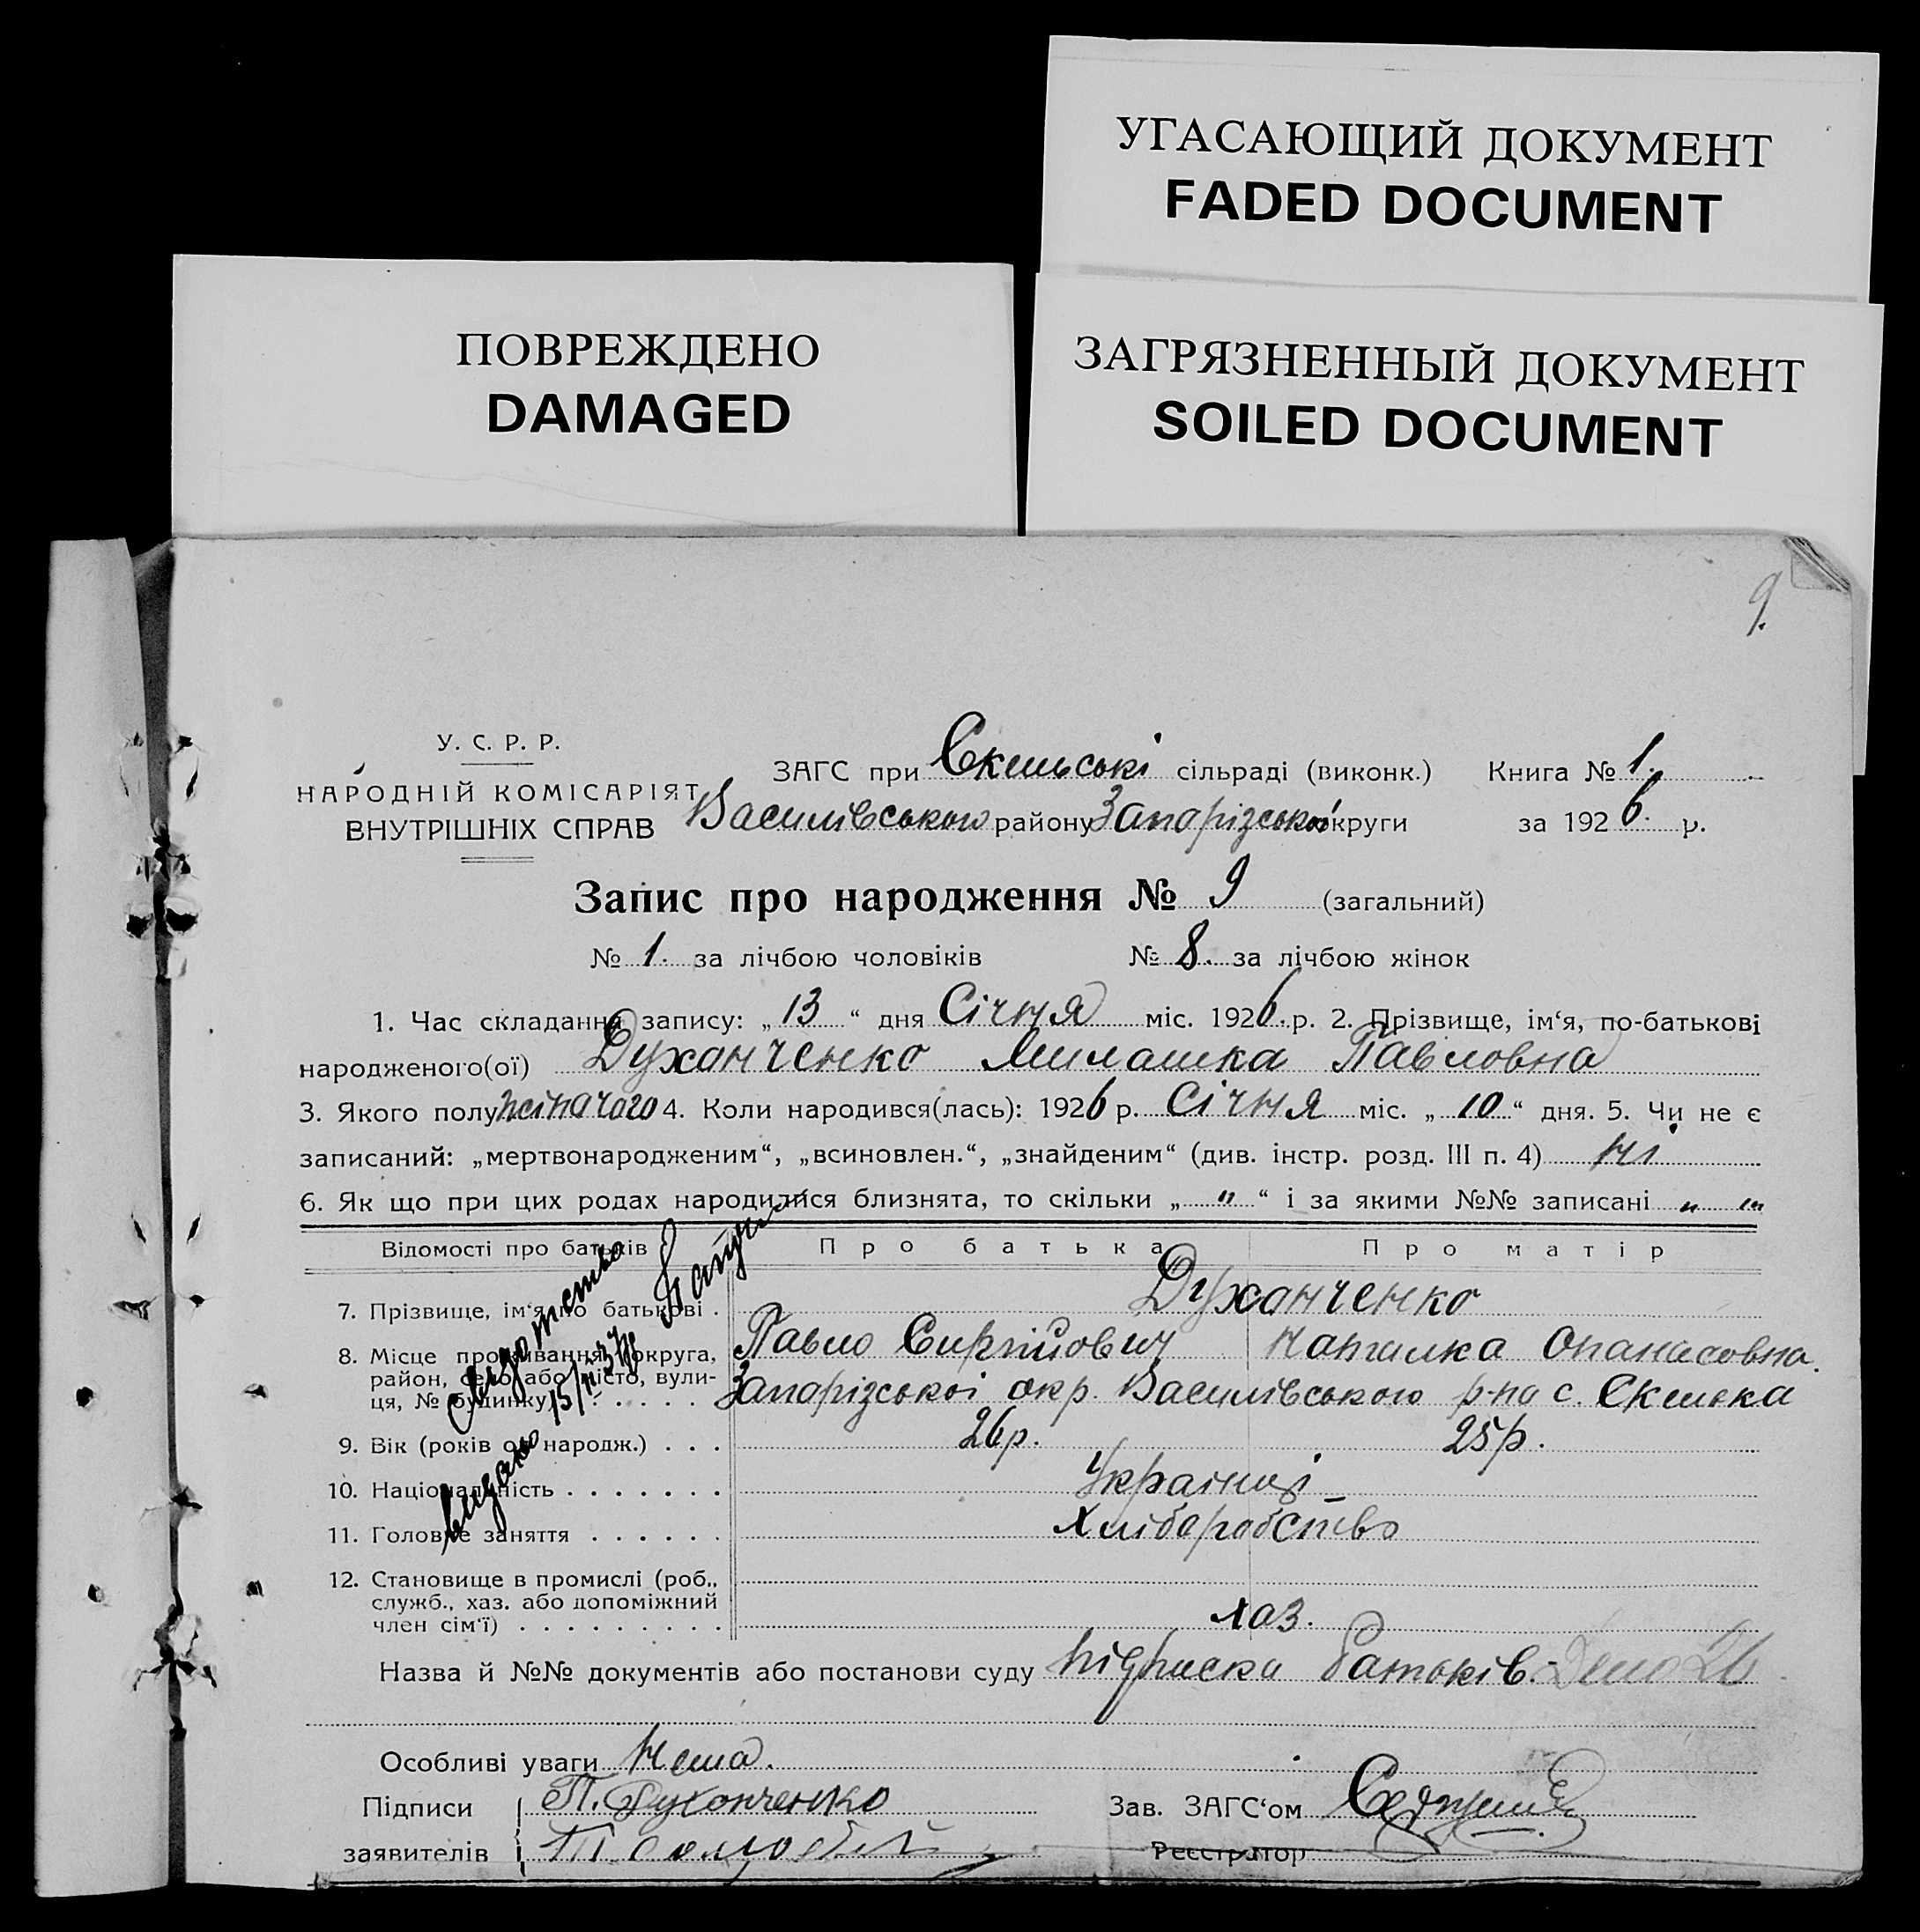 УГАСАЮЩИЙ ДОКУМЕНТ
FADED DOCUMENT
ПОВРЕЖДЕНО
DAMAGED
ЗАГРЯЗНЕННЫЙ ДОКУМЕНТ
SOILED DOCUMENT
9.
У. С. Р. Р.
НАРОДНІЙ КОМІСАРІЯТ
ВНУТРІШНІХ СПРАВ
ЗАГС при Скельські сільраді (виконк.) Книга № 1.
Василівського району Запорізської округи за 1926. р.
Запис про народження № 9 (загальний)
№ 1. за лічбою чоловіків № 8. за лічбою жінок
1. Час складання запису: „13“ дня Січня міс. 1926.р. 2. Прізвище, ім‘я, по-батькові
народженого(ої) Духанченко Милашка Павловна
3. Якого полу жіночого 4. Коли народився(лась): 1926 р. Січня міс. „10“ дня. 5. Чи не є
записаний: „мертвонародженим“, „всиновлен.“, „знайденим“ (див. інстр. розд. III п. 4) ні
6. Як що при цих родах народилися близнята, то скільки „ " “ і за якими №№ записані " "
Відомості про батьків Про батька Про матір
7. Прізвище, ім‘я по батькові . Духанченко
Павло Сиргійович Наталка Опанасовна
8. Місце проживання (округа,
район, село або місто, вули-
ця, № будинку) . . . . . Запорізської окр. Василівського р-на с. Скелька
9. Вік (років од народж.) . . . 26 р. 25 р.
10. Національність . . . . . . . Українці
11. Головне заняття . . . . . . Хліборобство
12. Становище в промислі (роб.,
служб., хаз. або допоміжний
член сім‘ї) . . . . . . . . . хаз.
видано свідотство
Назва й №№ документів або постанови суду підписка батьків. Дело 26
Особливі уваги Нема.
Підписи П. Духонченко Зав. ЗАГС‘ом
заявителів Реєстратор